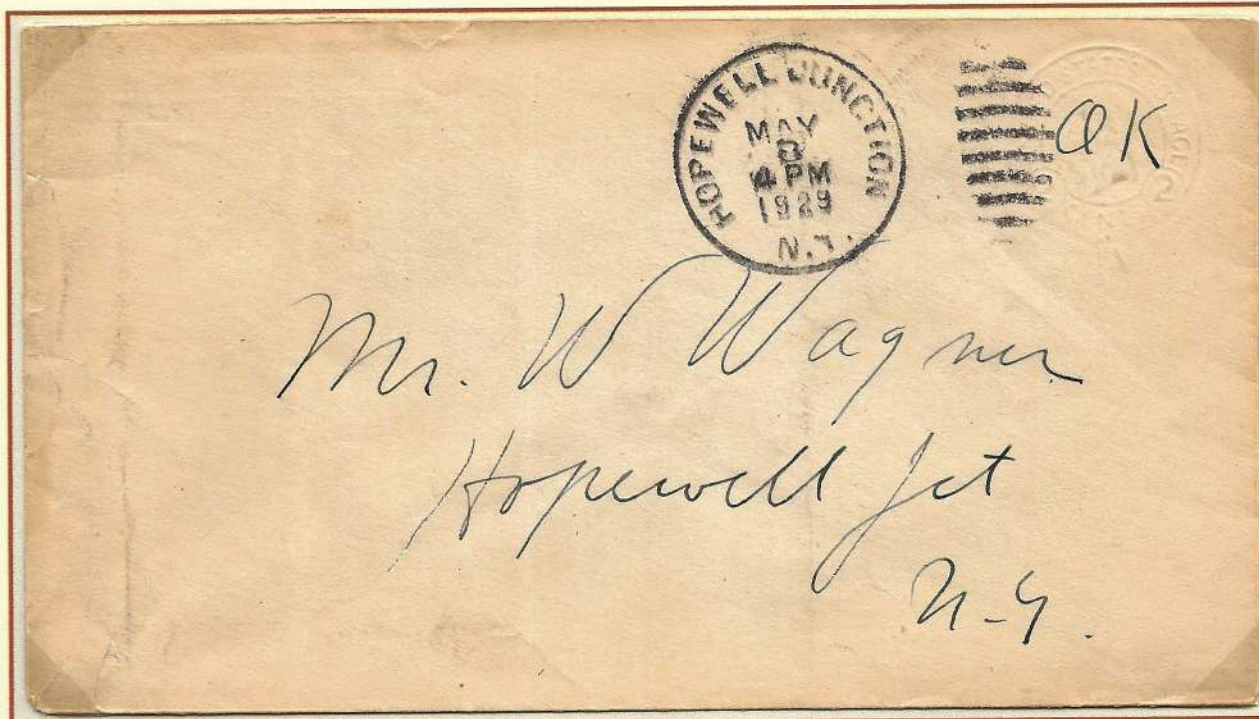 HOPEWELL JUNCTION
MAY
8
4 PM
1929
N.Y.
OK
Mr. W Wagner
Hopewell Jct
N-Y.